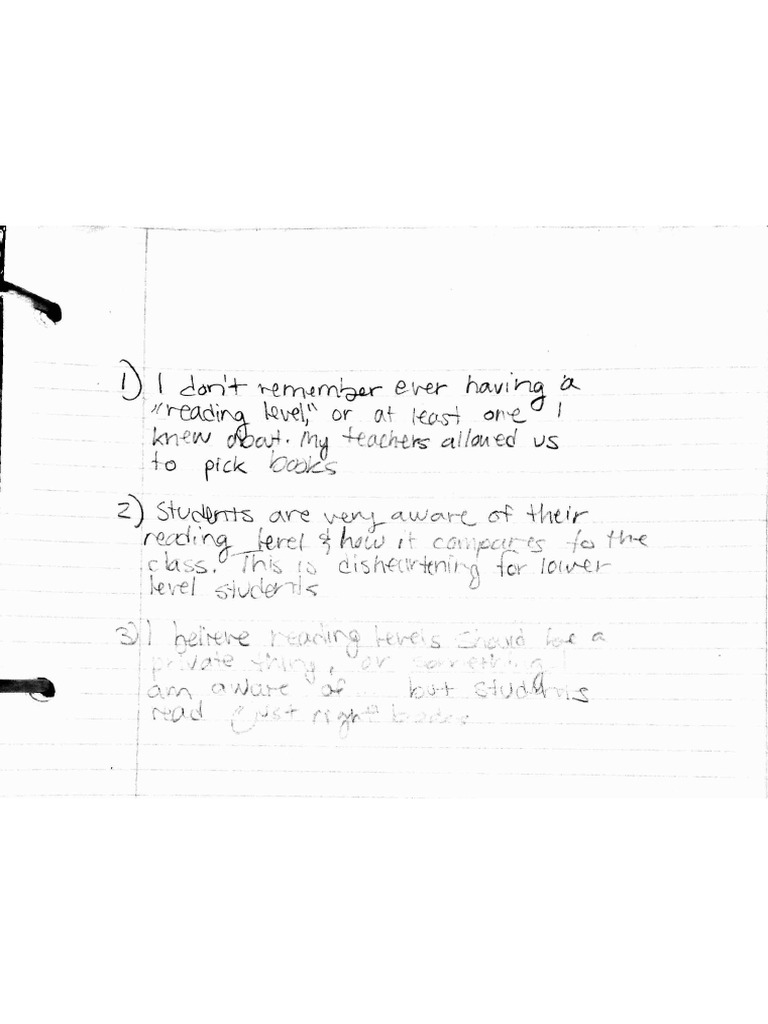 1) I don't remember ever having a
"reading level," or at least one I
knew about. My teachers allowed us
to pick books
2) Students are very aware of their
reading level & how it compares to the
class. This is disheartening for lower
level students
3) I believe reading levels should be a
private thing, or something I
am aware of but students
read "just right" books